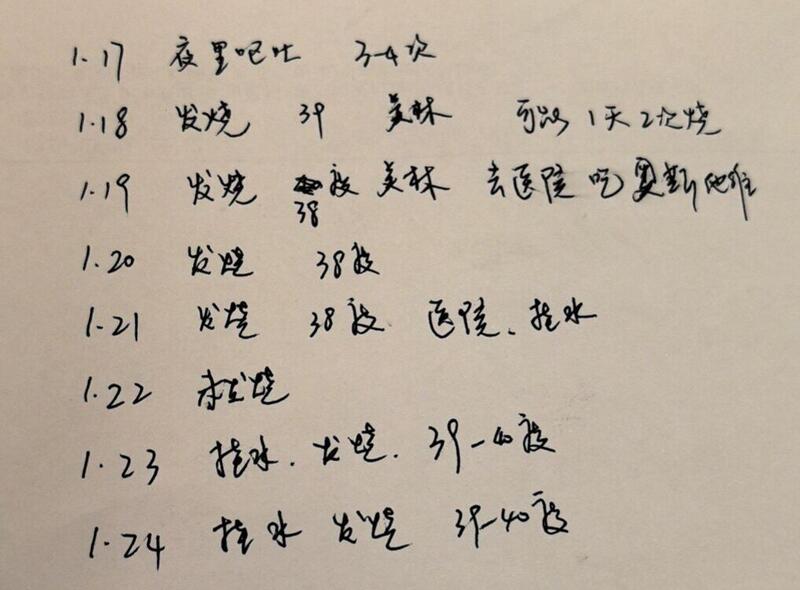 1.17 夜里呕吐 3-4次
1.18 发烧 39 美林 1天2次烧
1.19 发烧 38 度 美林 去医院 吃 奥斯他维
1.20 发烧 38度
1.21 发烧 38度 医院、挂水
1.22 未发烧
1.23 挂水、发烧、39-40度
1.24 挂水 发烧 39-40度